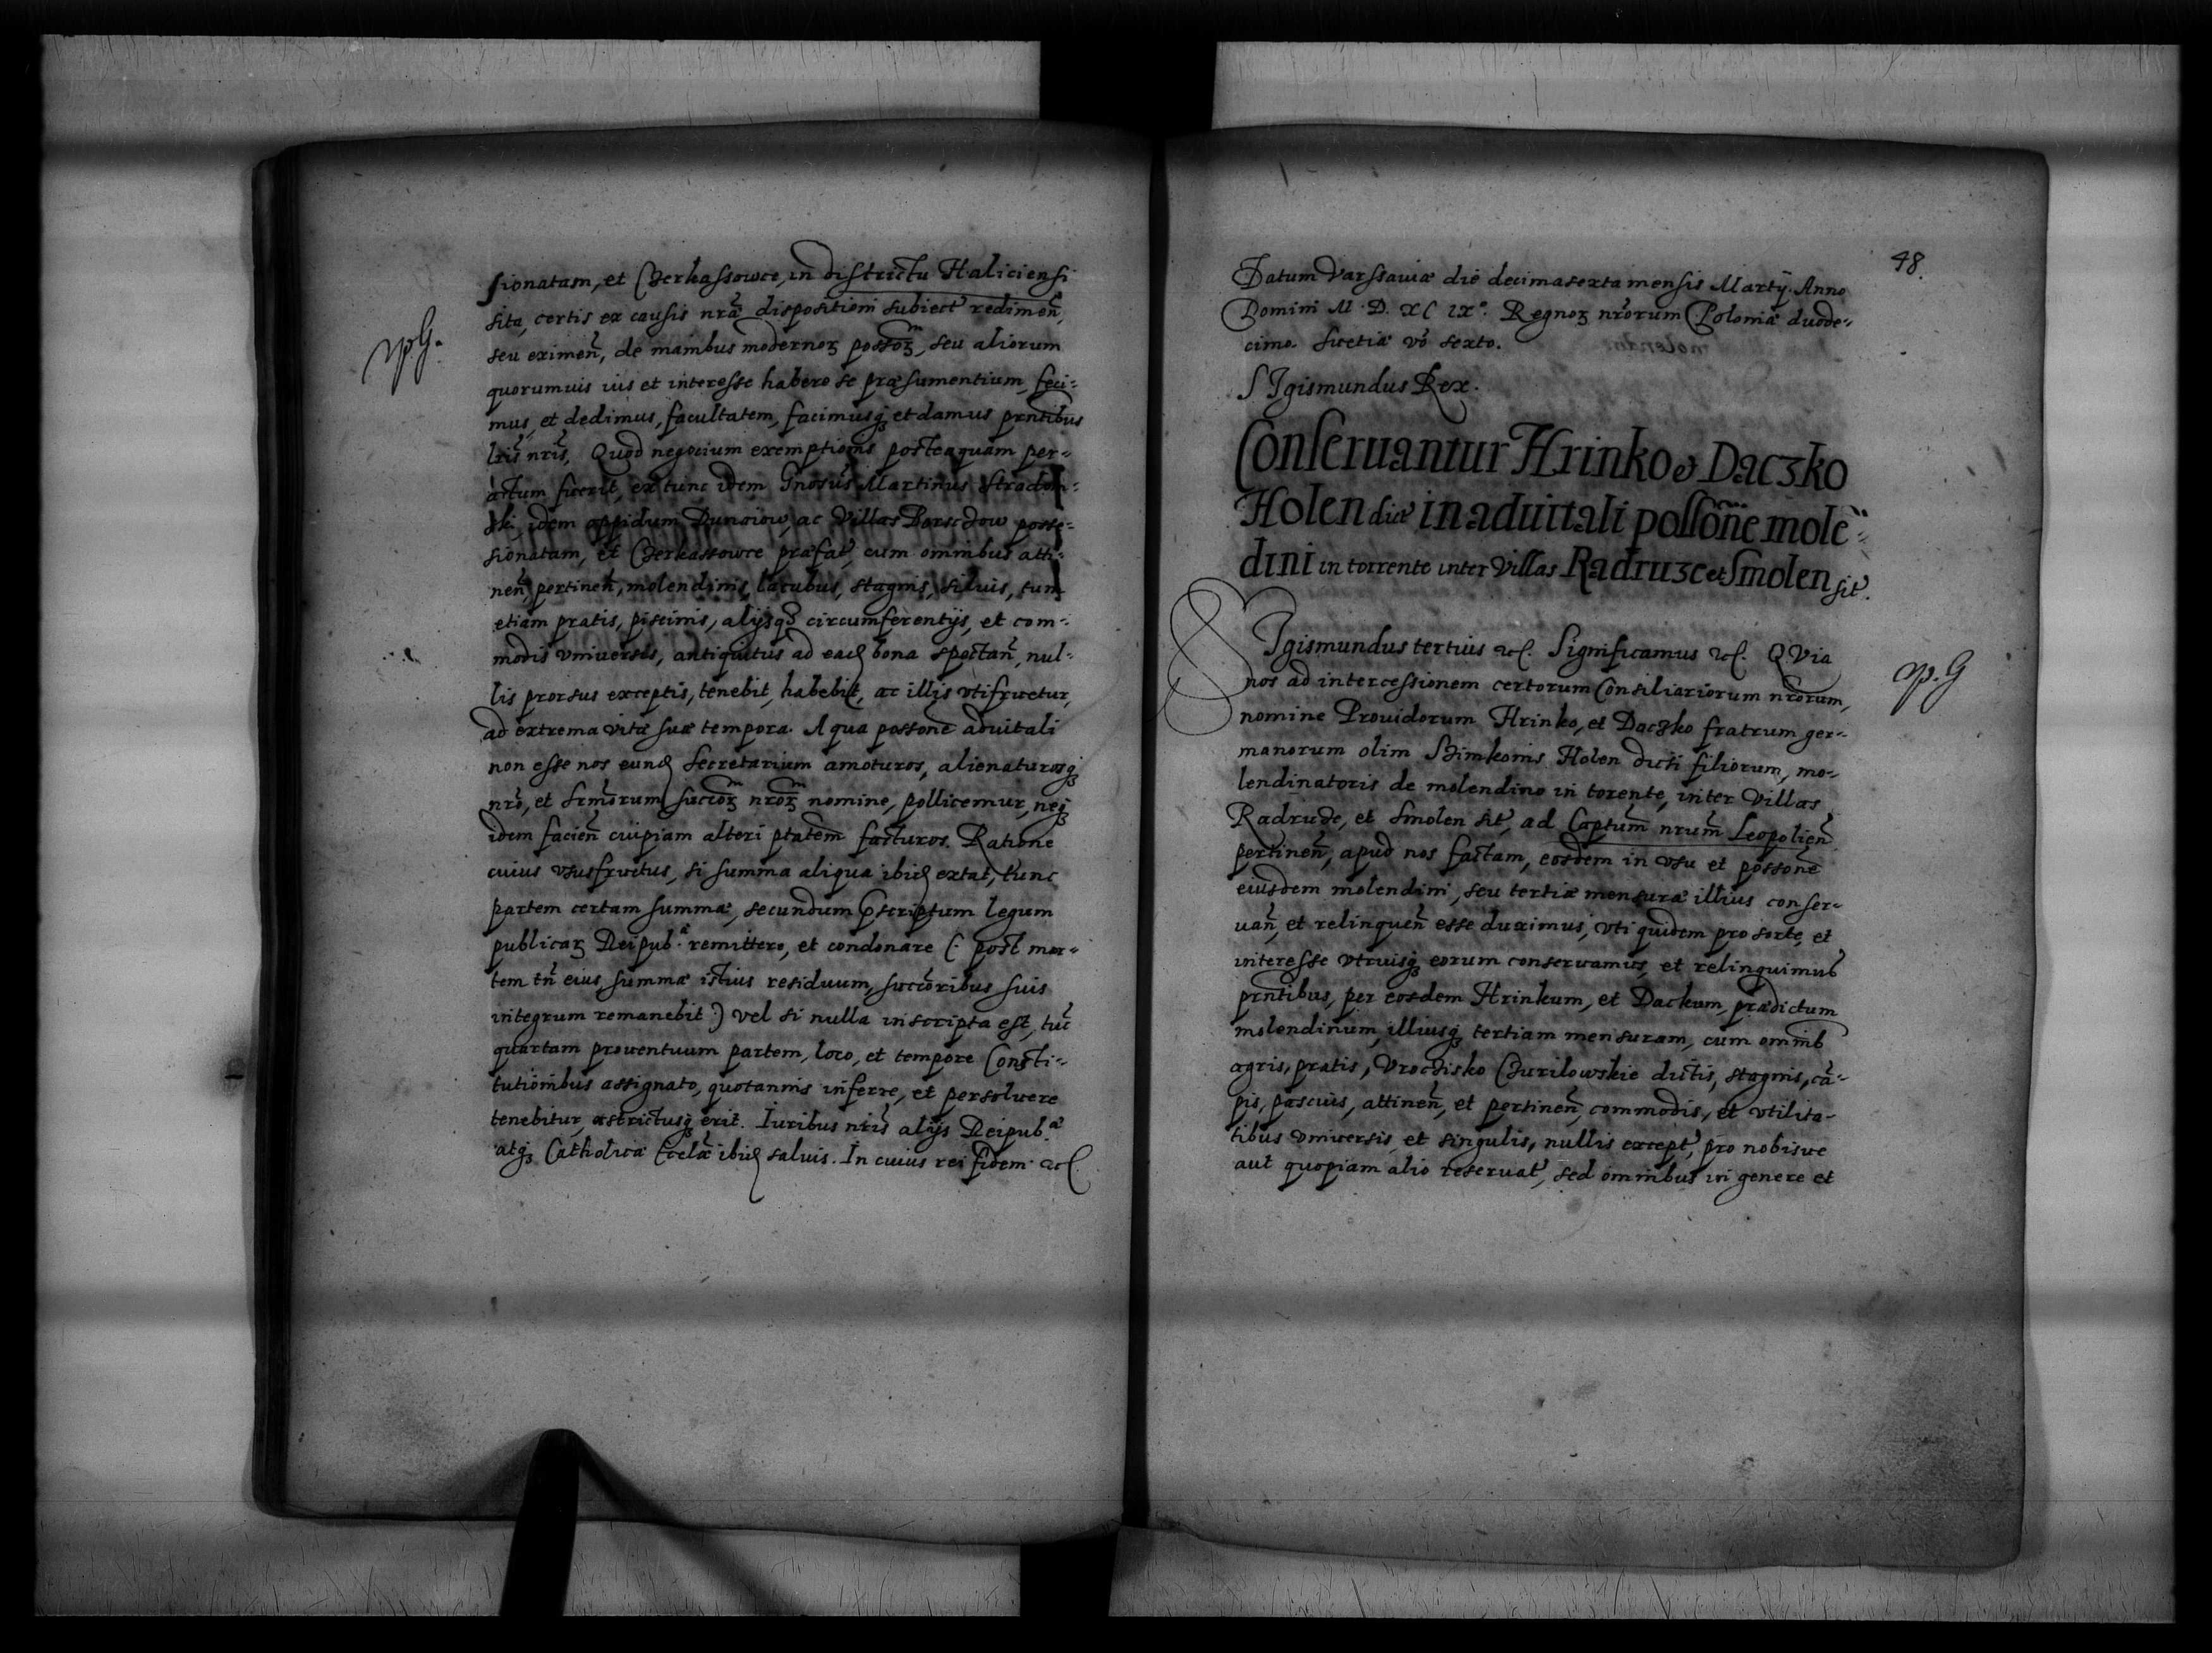 sionatam, et Czerkassowce, in districtu Haliciensi
sita, certis ex causis nrã dispositioni subiect redimeñ,
seu eximeñ, de manibus modernoꝝ possoꝝ, seu aliorum
quorumuis ius et interesse habere se præsumentium, feci-
mus, et dedimus, facultatem, facimusqꝫ et damus pñtibus
lris nris, Quod negocium exemptionis posteaquam per-
actum fuerit, ex tunc idem Gnosus Martinus Stradom-
ski, idem oppidum Dunaiow, ac Villas Borsczow posse-
sionatam, et Czerkassowce præfat, cum omnibus atti-
neñ, pertineñ, molendinis, lacubus, stagnis, siluis, tum
etiam pratis, piscinis, alijsqꝫ circumferentijs, et com-
modis vniuersis, antiquitus ad eadꝫ bona spectañ, nul-
lis prorsus exceptis, tenebit, habebit, ac illis vtifruetur,
ad extrema vitæ suæ tempora. A qua possone aduitali
non esse nos eundꝫ Secretarium amoturos, alienaturosqꝫ
nro, et Srmorum succoꝝ nroꝝ nomine, pollicemur, neqꝫ
idem facieñ cuipiam alteri ptatem facturos. Ratione
cuius vsusfructus, si summa aliqua ibidꝫ extat, tunc
partem certam summæ, secundum pscriptum legum
publicaꝝ Reipub.æ remittere, et condonare (: post mor-
tem tñ eius, summæ istius residuum, succoribus suis
integrum remanebit :) vel si nulla inscripta est, tuc
quartam prouentuum partem, loco, et tempore Consti-
tutionibus assignato, quotannis inferre, et persoluere
tenebitur, astrictusqꝫ erit. Iuribus nris alijs Reipub.æ
atqꝫ Catholicæ Ecclæ ibidꝫ saluis. In cuius rei fidem etc.
48.
Datum Varssauiæ die decima sexta mensis Martij. Anno
Domini M.D.XC IXº. Regnoꝝ nrorum Poloniæ duode-
cimo. Suetiæ vo sexto.
SIgismundus Rex.
Conseruantur Hrinko et Daczko
Holen dict in aduitali possone mole-
dini in torrente inter Villas Radruzc et Smolen sit.
SIgismundus tertius etc. Significamus etc. QVia
nos ad intercessionem certorum Consiliariorum nrorum,
nomine Prouidorum Hrinko, et Daczko fratrum ger-
manorum olim Szimkonis Holen dicti filiorum, mo-
lendinatoris de molendino in torente, inter Villas
Radruze, et Smolen sit, ad Captum nrum Leopolieñ
pertineñ, apud nos factam, eosdem in vsu et possone
eiusdem molendini, seu tertiæ mensuræ illius conser-
uañ, et relinqueñ esse duximus, vti quidem pro sorte, et
interesse vtriusqꝫ eorum conseruamus, et relinquimus
pñtibus, per eosdem Hrinkum, et Dackum, prædictum
molendinum, illiusqꝫ tertiam mensuram, cum omnib
agris, pratis, Vroczisko Czurilowskie dictis, stagnis, cã-
pis, pascuis, attineñ, et pertineñ, commodis, et vtilita-
tibus vniuersis, et singulis, nullis except, pro nobisue
aut quopiam alio reseruat, sed omnibus in genere et